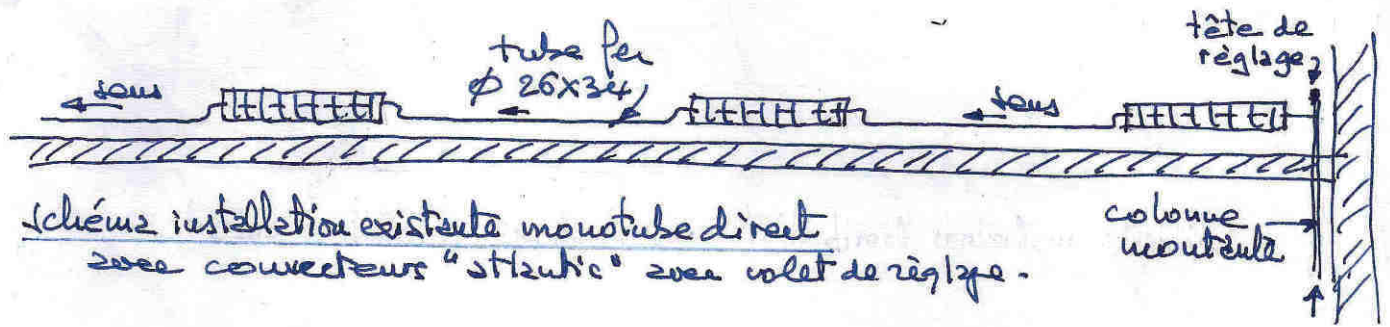 tête de
réglage
tube fer
Ø 26x34
sens
sens
schéma installation existante monotube direct
avec convecteurs "atlantic" avec volet de règlage.
colonne
montante